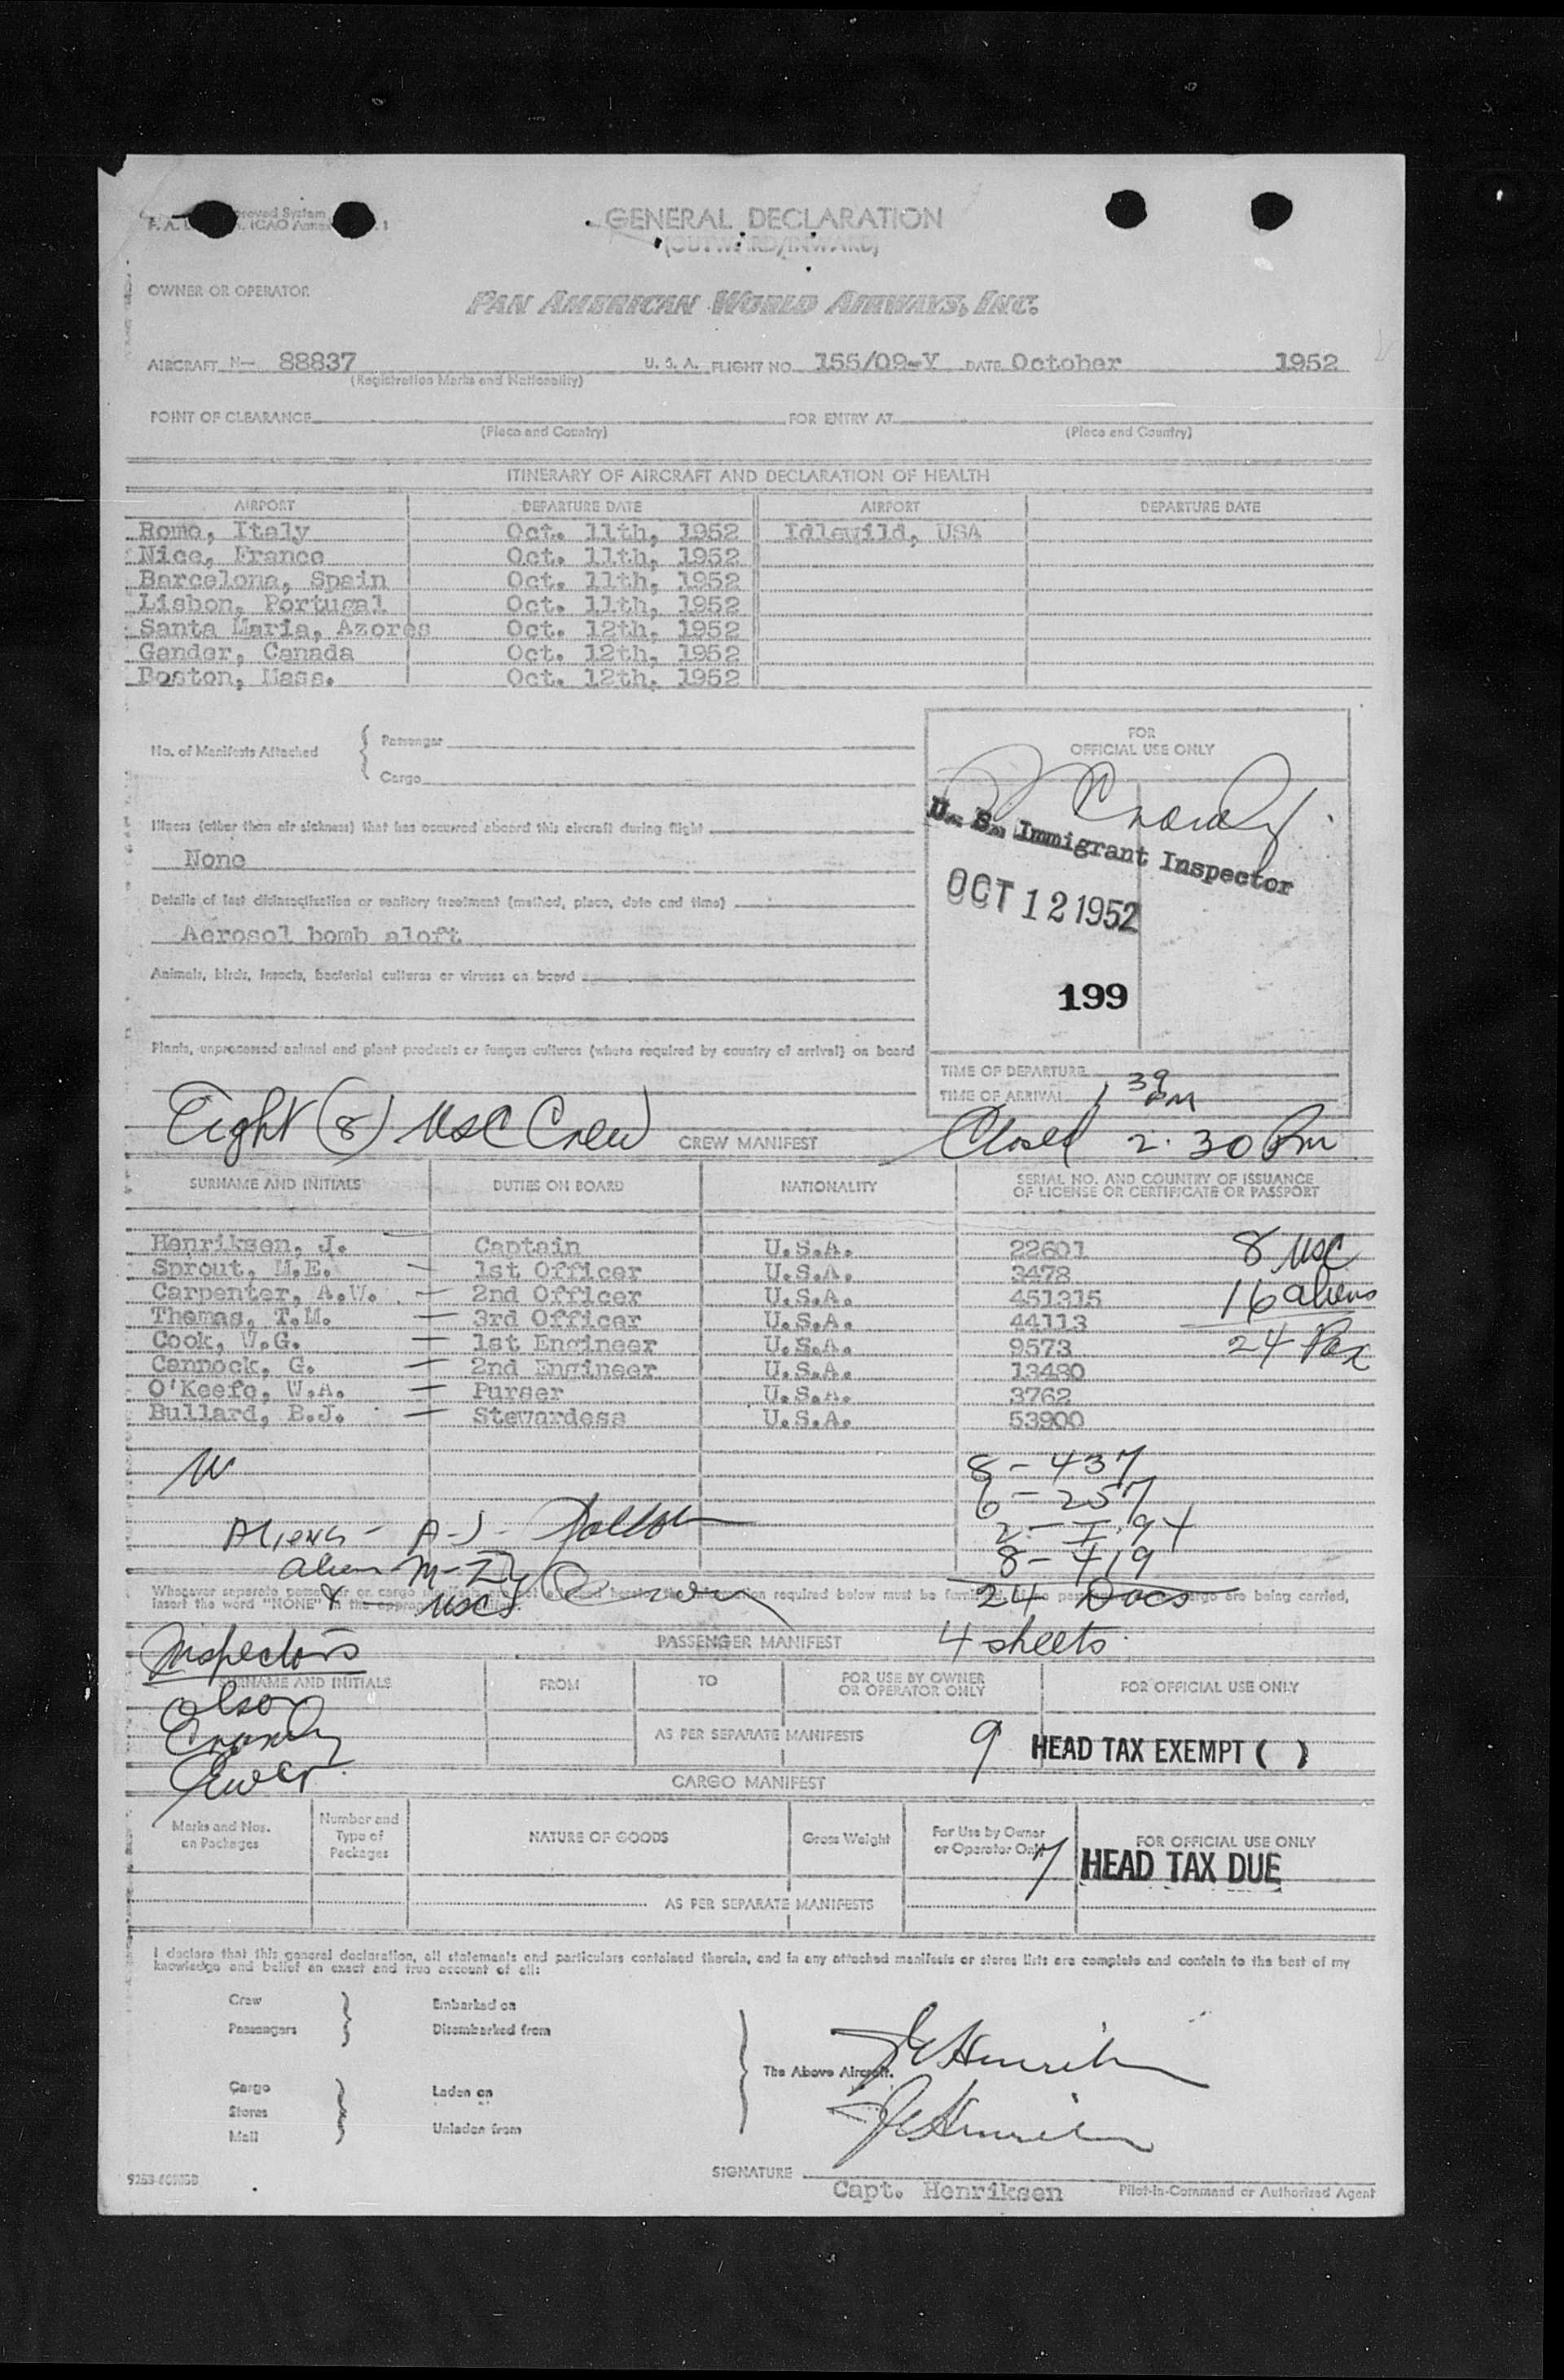 GENERAL DECLARATION
(OUTWARD/INWARD)
OWNER OR OPERATOR
PAN AMERICAN WORLD AIRWAYS, INC.
AIRCRAFT N- 88837 U. S. A. FLIGHT NO. 155/09-Y DATE October 1952
(Registration Marks and Nationality)
POINT OF CLEARANCE FOR ENTRY AT
(Place and Country) (Place and Country)
ITINERARY OF AIRCRAFT AND DECLARATION OF HEALTH
AIRPORT DEPARTURE DATE AIRPORT DEPARTURE DATE
Rome, Italy Oct. 11th, 1952 Idlewild, USA
Nice, France Oct. 11th, 1952
Barcelona, Spain Oct. 11th, 1952
Lisbon, Portugal Oct. 11th, 1952
Santa Maria, Azores Oct. 12th, 1952
Gander, Canada Oct. 12th, 1952
Boston, Mass. Oct. 12th, 1952
No. of Manifests Attached
Passenger
Cargo
FOR
OFFICIAL USE ONLY
U. S. Immigrant Inspector
OCT 12 1952
199
Illness (other than air sickness) that has occurred aboard this aircraft during flight
None
Details of last disinsectization or sanitary treatment (method, place, date and time)
Aerosol bomb aloft
Animals, birds, insects, bacterial cultures or viruses on board
Plants, unprocessed animal and plant products or fungus cultures (where required by country of arrival) on board
TIME OF DEPARTURE
TIME OF ARRIVAL 1 39 PM
Eight (8) USC Crew CREW MANIFEST Closed 2:30 Pm
SURNAME AND INITIALS DUTIES ON BOARD NATIONALITY SERIAL NO. AND COUNTRY OF ISSUANCE
OF LICENSE OR CERTIFICATE OR PASSPORT
Henriksen, J. Captain U.S.A. 22601 8 USC
Sprout, M.E. — 1st Officer U.S.A. 3478
Carpenter, A.W. — 2nd Officer U.S.A. 451315 16 aliens
Thomas, T.M. — 3rd Officer U.S.A. 44113
Cook, W.G. — 1st Engineer U.S.A. 9573 24 Pax
Cannock, G. — 2nd Engineer U.S.A. 13480
O'Keefe, W.A. — Purser U.S.A. 3762
Bullard, B.J. — Stewardess U.S.A. 53900
8 - 437
6 - 257
Aliens - A-J- 2 - I-94
alien M-Z 8 - 419
& - USCs 24 Docs
Whenever separate passenger or cargo being carried,
insert the word "NONE" in the
Inspectors PASSENGER MANIFEST 4 sheets
SURNAME AND INITIALS FROM TO FOR USE BY OWNER
OR OPERATOR ONLY FOR OFFICIAL USE ONLY
Olson
AS PER SEPARATE MANIFESTS 9 HEAD TAX EXEMPT ( )
CARGO MANIFEST
Marks and Nos.
on Packages
Number and
Type of
Packages
NATURE OF GOODS
Gross Weight
For Use by Owner
or Operator Only
FOR OFFICIAL USE ONLY
7 HEAD TAX DUE
AS PER SEPARATE MANIFESTS
I declare that this general declaration, all statements and particulars contained therein, and in any attached manifests or stores lists are complete and contain to the best of my
knowledge and belief an exact and true account of all:
Crew Embarked on
Passengers Disembarked from
The Above Aircraft.
Cargo Laden on
Stores
Mail Unladen from
SIGNATURE
Capt. Henriksen Pilot-in-Command or Authorized Agent